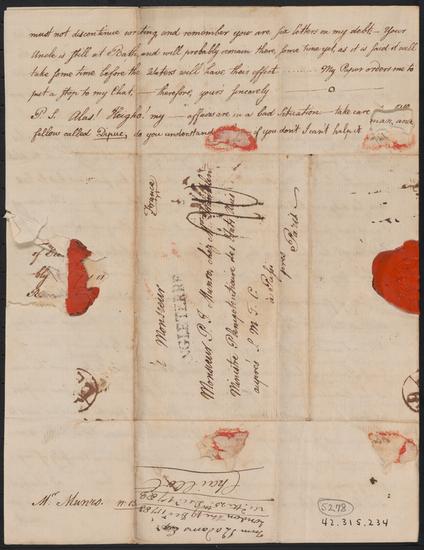 must not discontinue writing and remember you are six letters in my debt – Your
Uncle is still at Bath and will probably remain there some time yet, as it is said it will
take some time before the Waters will have their effect ...... My Paper orders me to
put a stop to my Chat, — therefore, yours sincerely
P. S. Alas! Heigho! my — affairs are in a bad Situation – take care
man, and
fellow called Depuc, do you understand if you don't I can't help it
France
à Monsieur
ANGLETERRE
Monsieur P. J. Munro, chez Mr
Ministre Plenipotentiaire des Etats Unis
auprès S. M. T. C.
à Passi
près Paris
of
My
Mr. Munro.
London the 19 Decr. 1783
5278
42.315.234